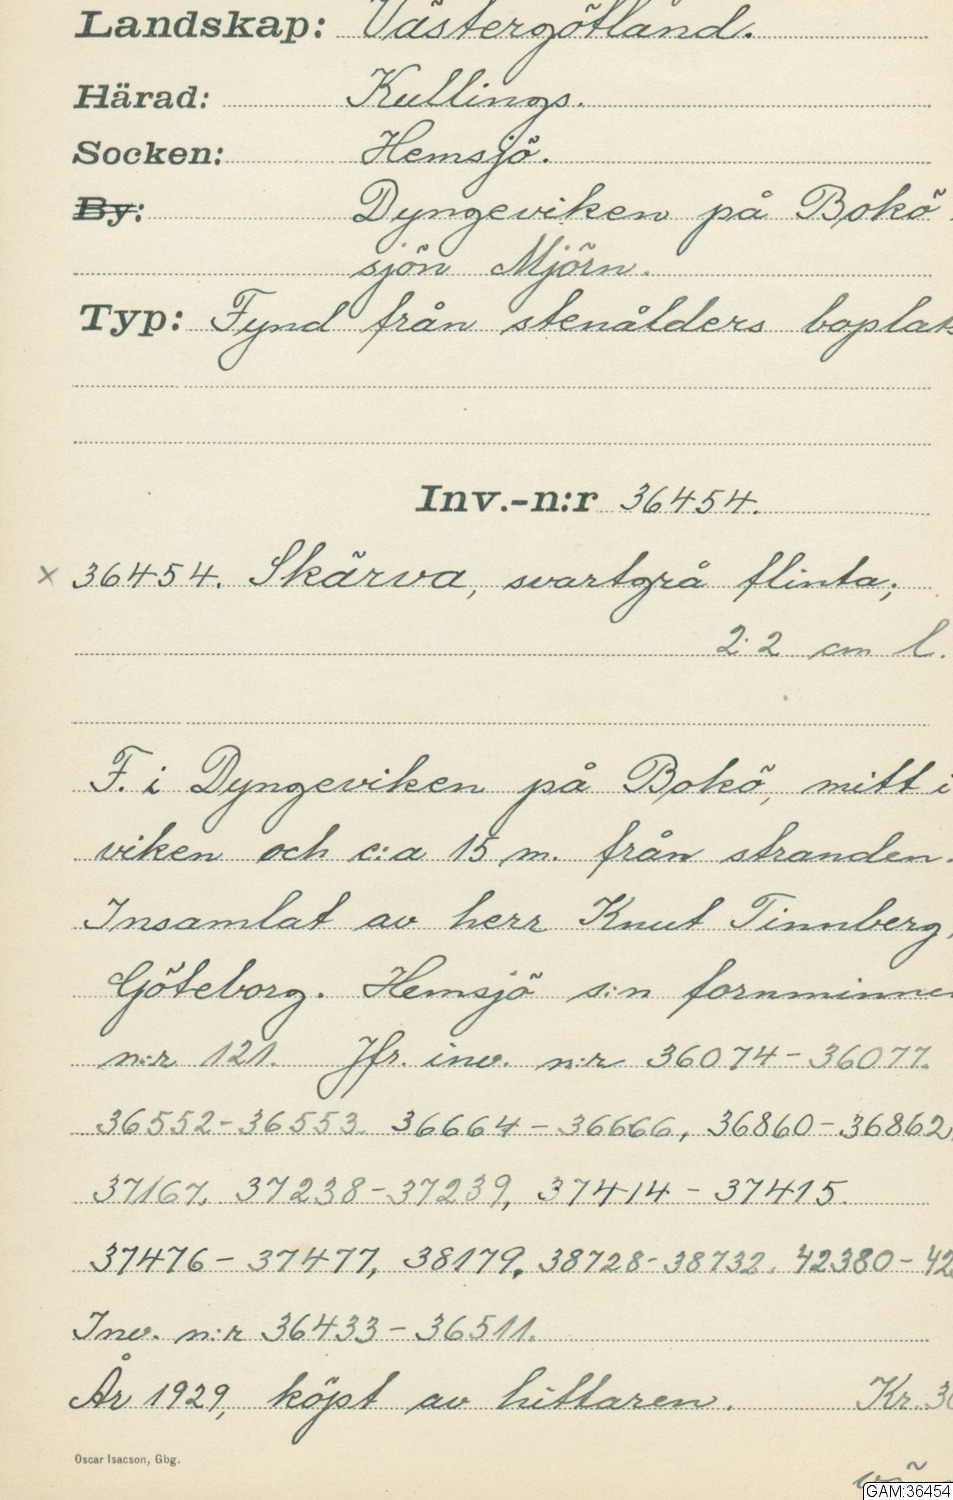 Landskap: Västergötland.
Härad: Kullings.
Socken: Hemsjö.
By: Dyngeviken på Bokö
sjön Mjörn.
Typ: Fynd från stenålders boplats
Inv.-n:r 36454.
x 36454. Skärva, svartgrå flinta;
2.2 cm l.
F. i Dyngeviken på Bokö, mitt i
viken och c:a 15 m. från stranden.
Insamlat av herr Knut Tinnberg,
Göteborg. Hemsjö s:n fornminne
n:r 121. Jfr. inv. n:r 36074-36077.
36552-36553. 36664-36666, 36860-36862,
37167, 37238-37239, 37414-37415.
37476-37477, 38179, 38728-38732. 42380-42
Inv. n:r 36433-36511.
År 1929, köpt av hittaren. Kr. 30
Oscar Isacson, Gbg.
GAM:36454